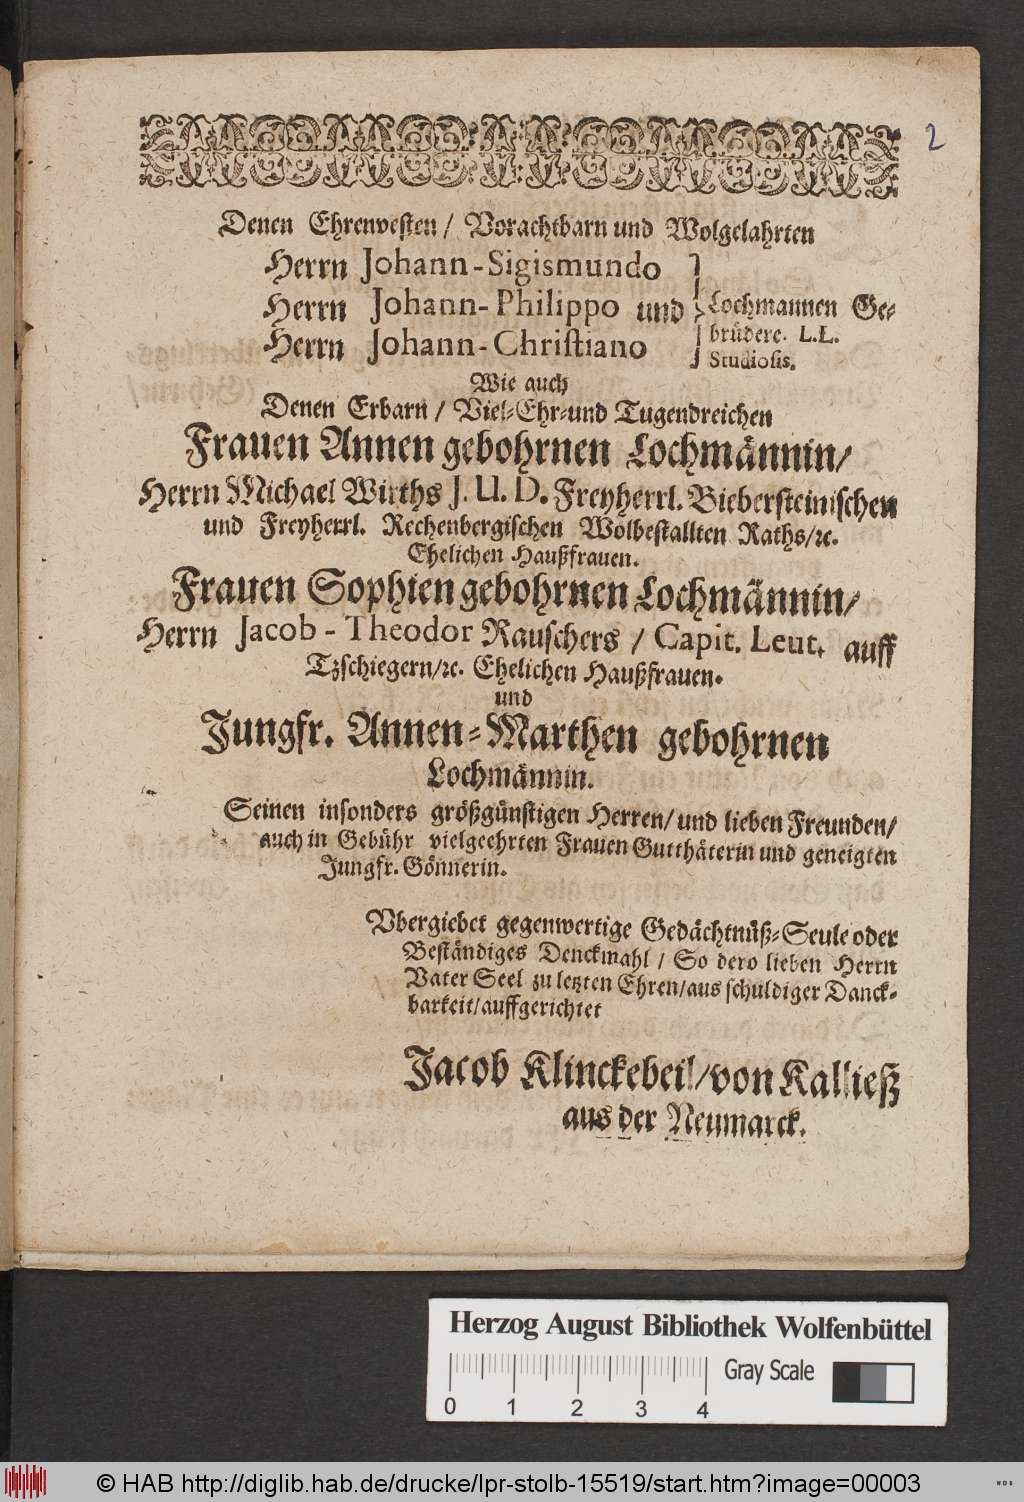 2
Denen Ehrenvesten / Vorachtbarn und Wolgelahrten
Herrn Johann-Sigismundo
Herrn Johann-Philippo und
Herrn Johann-Christiano
Lochmannen Ge-
brüdere. L.L.
Studiosis.
Wie auch
Denen Erbarn / Viel-Ehr-und Tugendreichen
Frauen Annen gebohrnen Lochmännin /
Herrn Michael Wirths J. U. D. Freyherrl. Biebersteinischen
und Freyherrl. Rechenbergischen Wolbestallten Raths / ꝛc.
Ehelichen Haußfrauen.
Frauen Sophien gebohrnen Lochmännin /
Herrn Jacob-Theodor Rauschers / Capit. Leut. auff
Tzschiegern / ꝛc. Ehelichen Haußfrauen.
und
Jungfr. Annen-Marthen gebohrnen
Lochmännin.
Seinen insonders größgünstigen Herren / und lieben Freunden /
auch in Gebühr vielgeehrten Frauen Gutthäterin und geneigten
Jungfr. Gönnerin.
Vbergiebet gegenwertige Gedächtnüß-Seule oder
Beständiges Denckmahl / So dero lieben Herrn
Vater Seel zu letzten Ehren / aus schuldiger Danck-
barkeit / auffgerichtet
Jacob Klinckebeil / von Kalließ
aus der Neumarck.
Herzog August Bibliothek Wolfenbüttel
Gray Scale
0 1 2 3 4
© HAB http://diglib.hab.de/drucke/lpr-stolb-15519/start.htm?image=00003